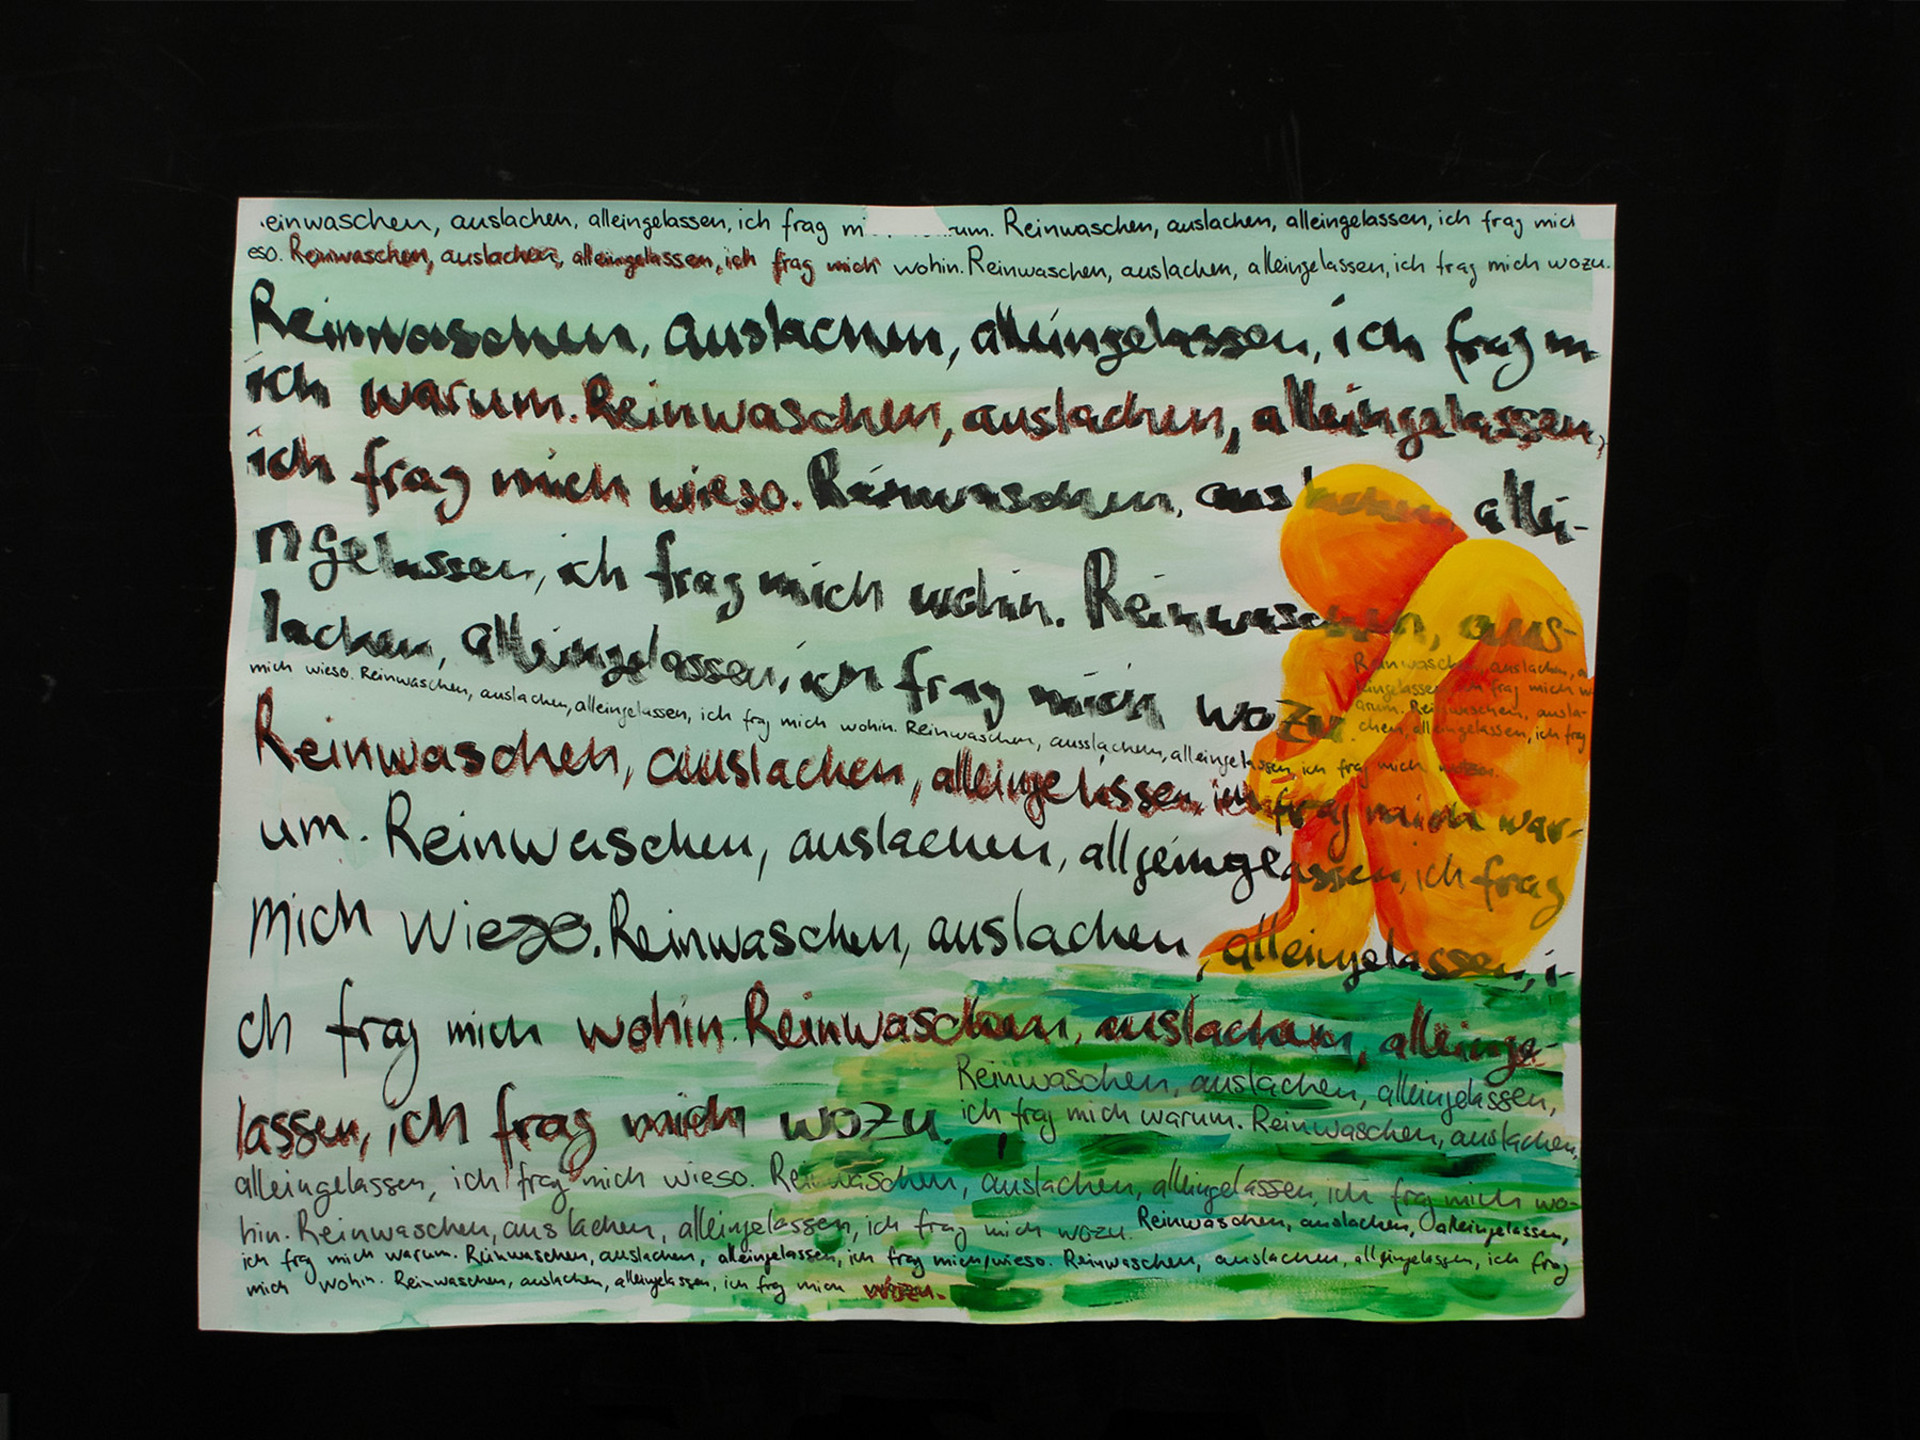 einwaschen, auslachen, alleingelassen, ich frag mi um. Reinwaschen, auslachen, alleingelassen, ich frag mich
eso. Reinwaschen, auslachen, alleingelassen, ich frag mich wohin. Reinwaschen, auslachen, alleingelassen, ich frag mich wozu.
Reinwaschen, auslachen, alleingelassen, ich frag m
ich warum. Reinwaschen, auslachen, alleingelassen,
ich frag mich wieso. Reinwaschen, auslachen, allei-
ngelassen, ich frag mich wohin. Reinwaschen, aus-
lachen, alleingelassen, ich frag mich wozu.
Reinwaschen, auslachen, a
leingelassen, ich frag mich w
arum. Reinwaschen, ausla-
chen, alleingelassen, ich frag
mich wieso. Reinwaschen, auslachen, alleingelassen, ich frag mich wohin. Reinwaschen, ausslachen, alleingelassen, ich frag mich wozu.
Reinwaschen, auslachen, alleingelassen, ich frag mich war-
um. Reinwaschen, auslachen, allgeingelassen, ich frag
mich wieso. Reinwaschen, auslachen, alleingelassen, i-
ch frag mich wohin. Reinwaschen, auslachen, alleinge-
lassen, ich frag mich wozu.
Reinwaschen, auslachen, alleingelassen,
ich frag mich warum. Reinwaschen, auslachen,
alleingelassen, ich frag mich wieso. Reinwaschen, auslachen, alleingelassen, ich frag mich wo-
hin. Reinwaschen, auslachen, alleingelassen, ich frag mich wozu. Reinwaschen, auslachen, alleingelassen,
ich frag mich warum. Reinwaschen, auslachen, alleingelassen, ich frag mich wieso. Reinwaschen, auslachen, alleingelassen, ich frag
mich wohin. Reinwaschen, auslachen, alleingelassen, ich frag mich wozu.